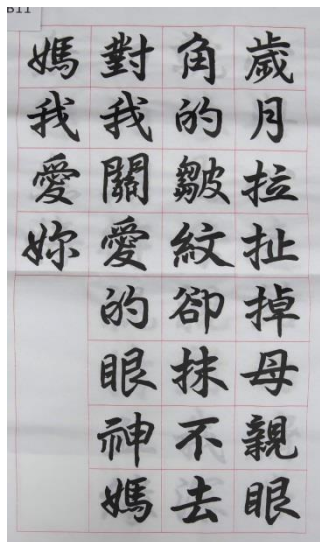 B11
歲月拉扯掉母親眼
角的皺紋卻抹不去
對我關愛的眼神媽
媽我愛妳